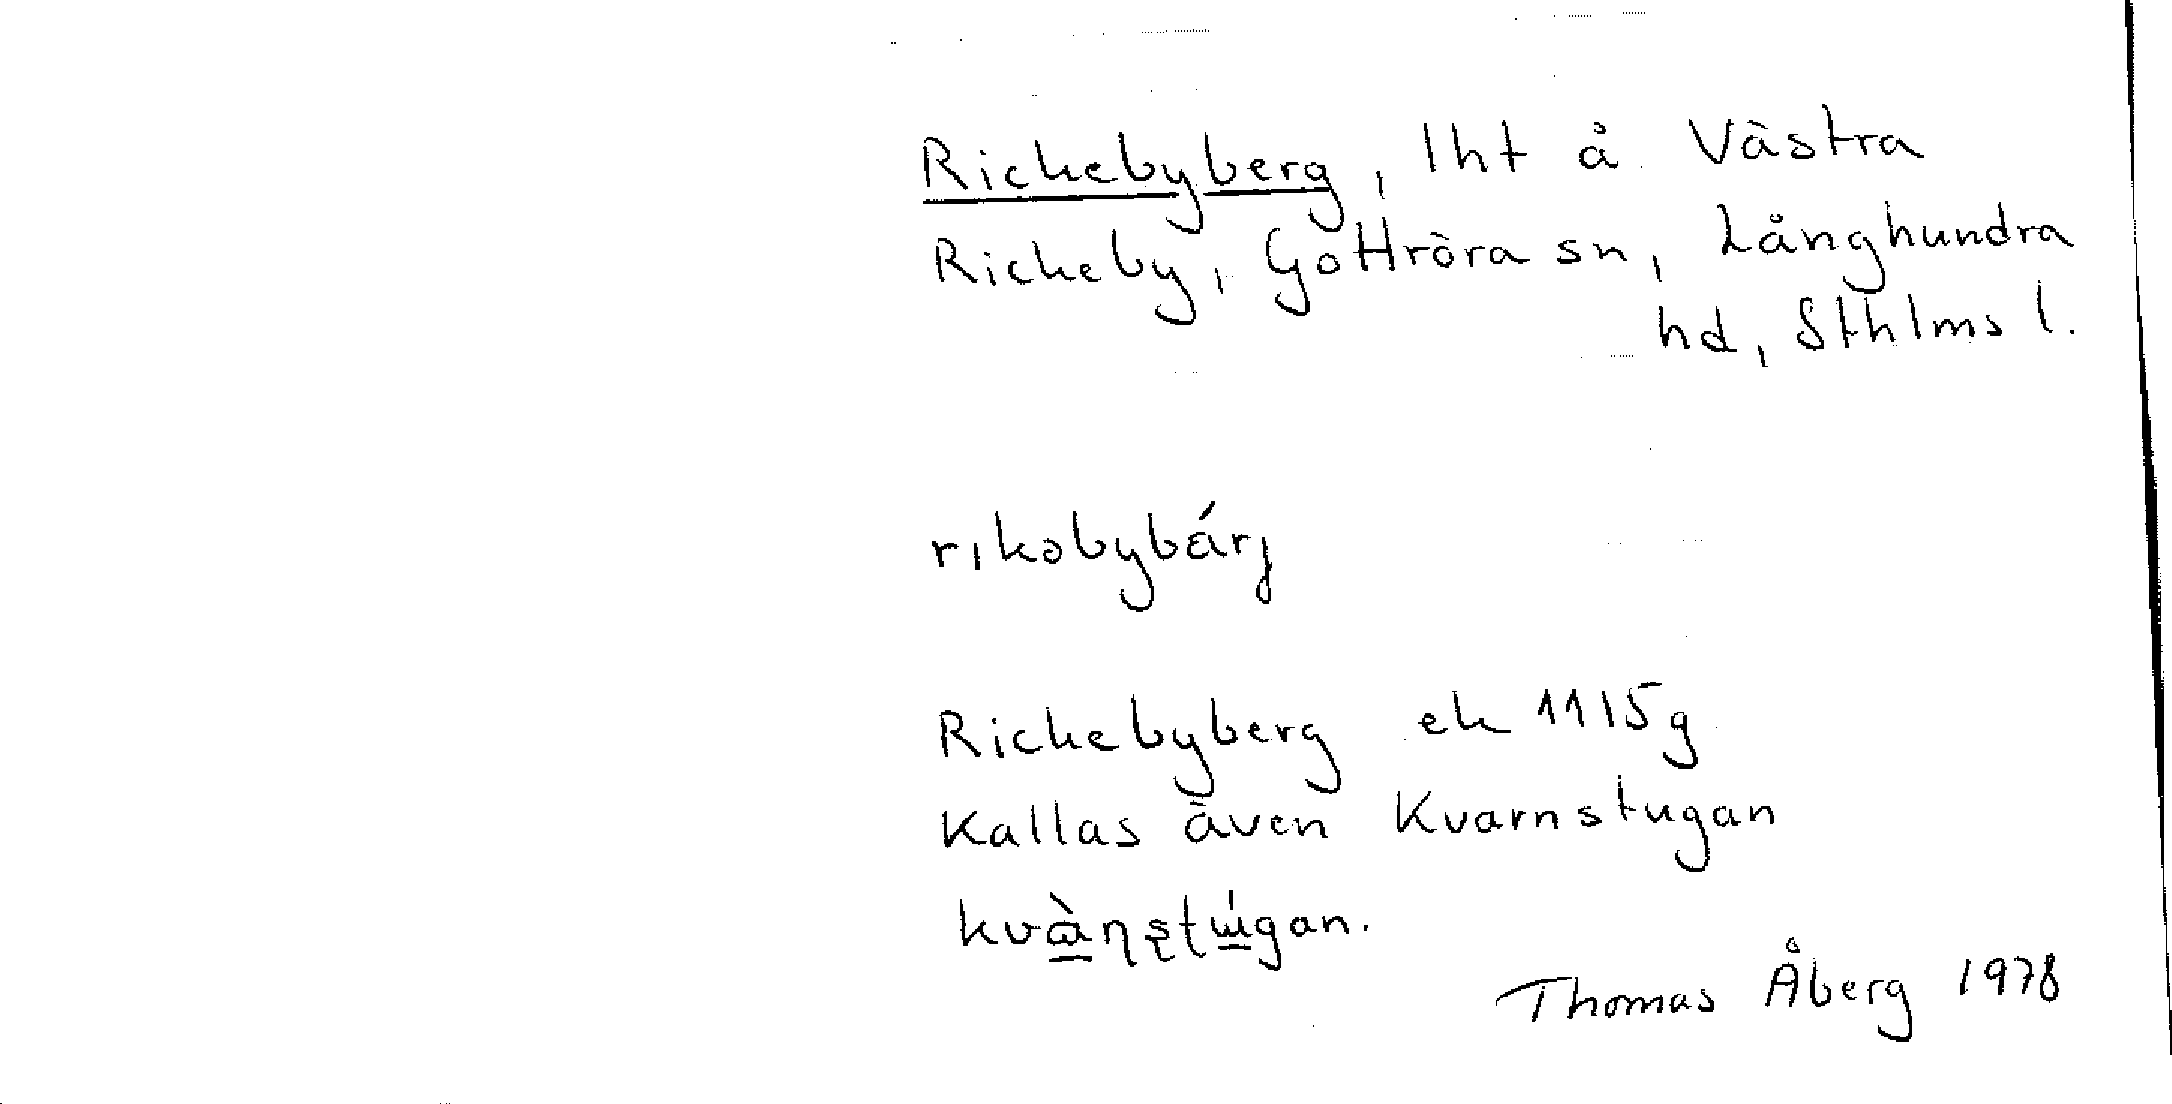 Rickebyberg, lht å Västra
Rickeby, Gottröra sn, Långhundra
hd, Sthlms l.
rıkəbybárj
Rickebyberg ek 11I5g
Kallas även Kvarnstugan
kvɑ̀ɳʂtɯ́gan.
Thomas Åberg 1978